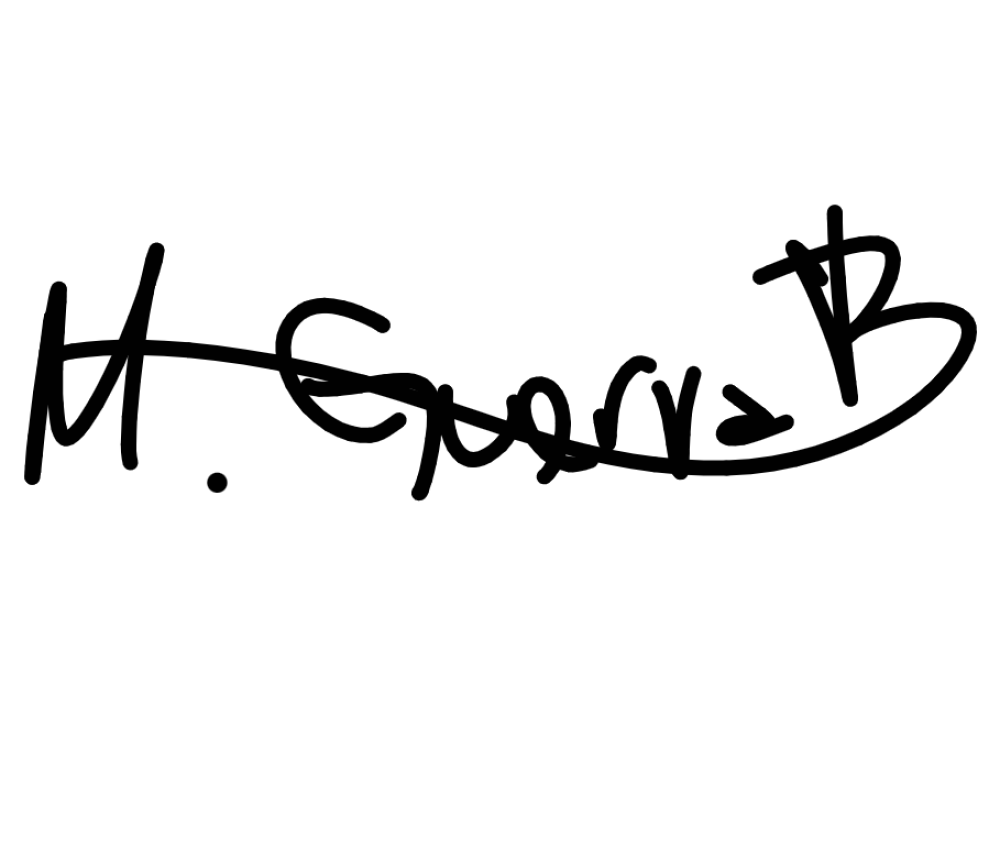 M. Guerra B